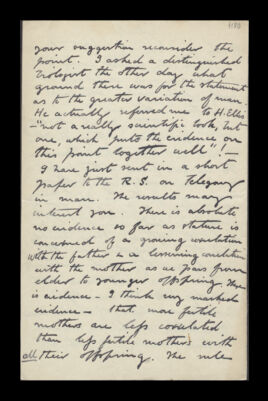 your suggestion reconsider the
point. I asked a distinguished
biologist the other day what
ground there was for the statement
as to the greater variation of man.
He actually referred me to H. Ellis
— "not a really scientific book, but
one, which puts the evidence on
this point together well"! —
I have just sent in a short
paper to the R.S. on Telegony
in man. The results may
interest you. There is absolutely
no evidence so far as stature is
concerned of a growing correlation
with the father & a lessening correlation
with the mother as we pass from
elder to younger offspring. There
is evidence — I think very marked
evidence — that more fertile
mothers are less correlated
than less fertile mothers with
all their offspring. The rule